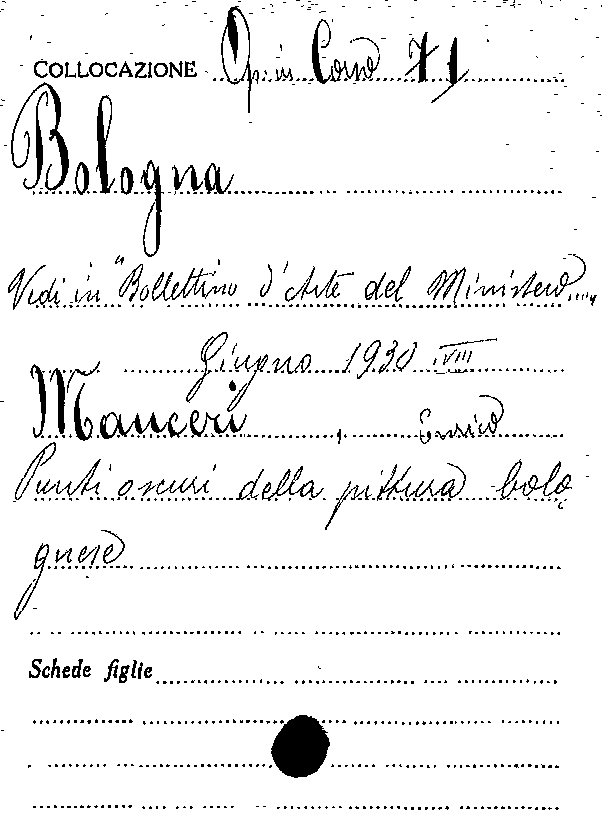 COLLOCAZIONE Op. in Corso 71
Bologna
Vedi in "Bollettino d'Arte del Ministero....,,
Giugno 1930 VIII
Mauceri, Enrico
Punti oscuri della pittura bolo
gnese
Schede figlie